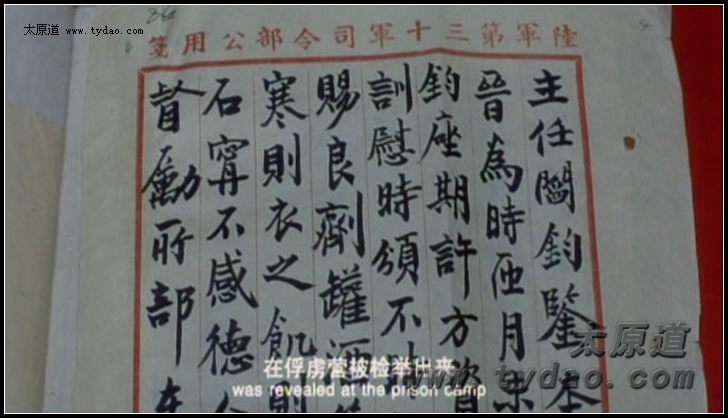 太原道 www.tydao.com
陸軍第三十軍司令部公用箋
主任閻鈞鑒
晉為時匝月
鈞座期許方
訓慰時頒不
賜良劑罐
寒則衣之飢則
石甯不感德
督勵所部
在俘虏营被检举出来
was revealed at the prison camp
太原道
www.tydao.com